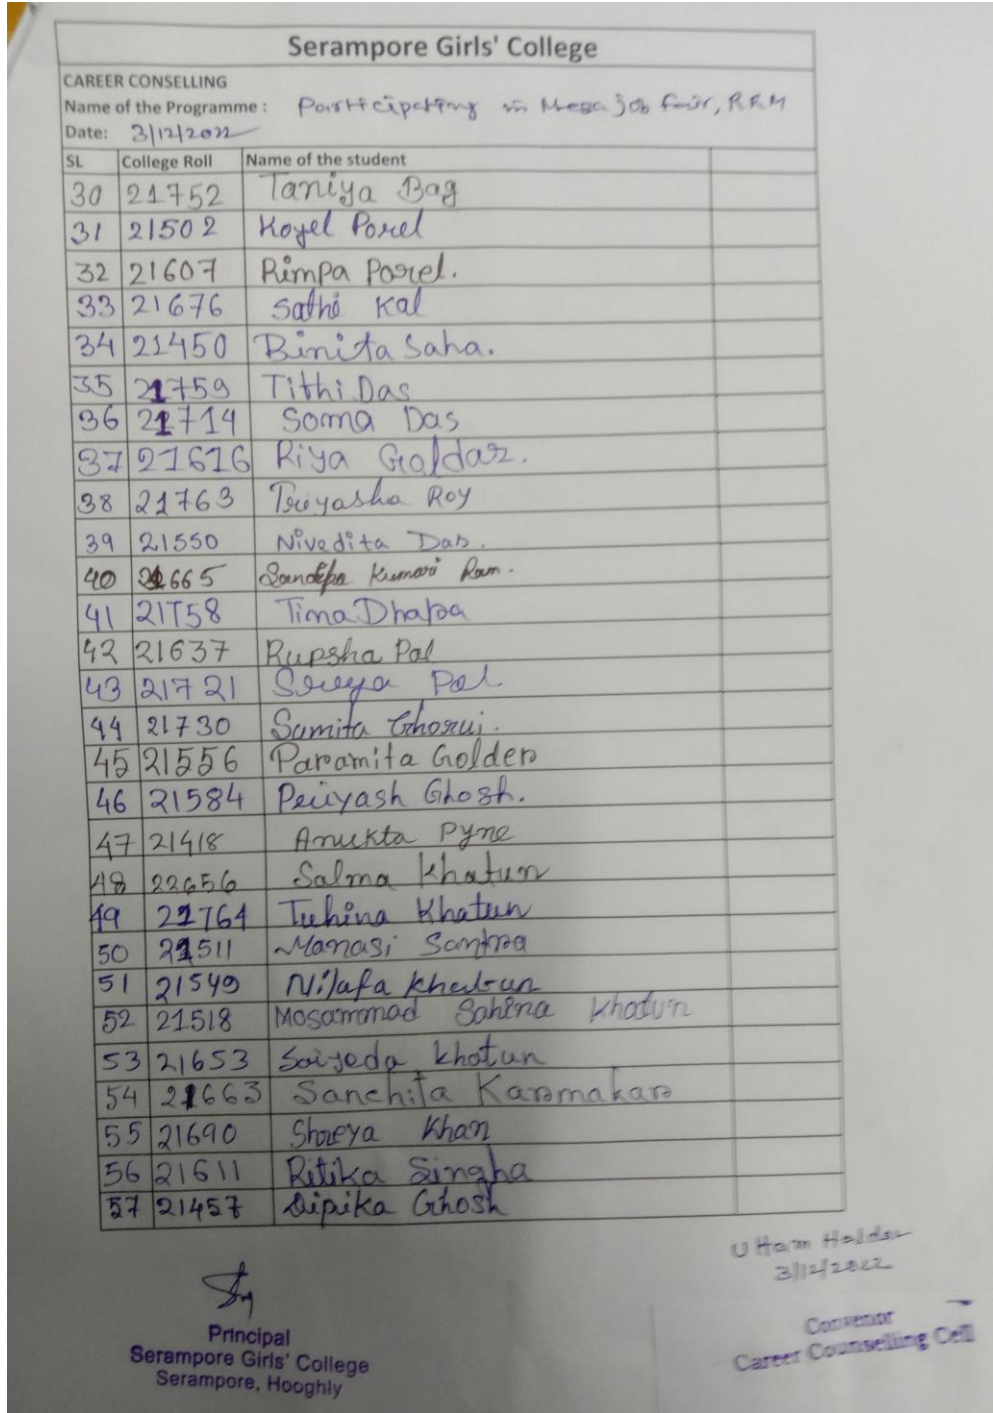 Serampore Girls' College
CAREER CONSELLING
Name of the Programme : Participating in Mega job fair, RRM
Date: 3/12/2022
SL College Roll Name of the student
30 21752 Taniya Bag
31 21502 Koyel Porel
32 21607 Rimpa Porel.
33 21676 Sathi Kal
34 21450 Binita Saha.
35 21759 Tithi Das
36 21714 Soma Das
37 21616 Riya Goldar.
38 21763 Triyasha Roy
39 21550 Nivedita Das.
40 21665 Sandipa Kumari Ram.
41 21758 Tima Dhara
42 21637 Rupsha Pal
43 21721 Sreya Pal
44 21730 Sumita Ghorui.
45 21556 Paramita Golder
46 21584 Priyash Ghosh.
47 21418 Anukta Pyne
48 22656 Salma Khatun
49 21764 Tuhina Khatun
50 21511 Manasi Santra
51 21549 Nilafa Khatun
52 21518 Mosammad Sahina Khatun
53 21653 Saiyeda Khatun
54 21663 Sanchita Karmakar
55 21690 Shreya Khan
56 21611 Ritika Singha
57 21457 Dipika Ghosh
Uttam Halder
3/12/2022
Principal
Serampore Girls' College
Serampore, Hooghly
Convenor
Career Counselling Cell